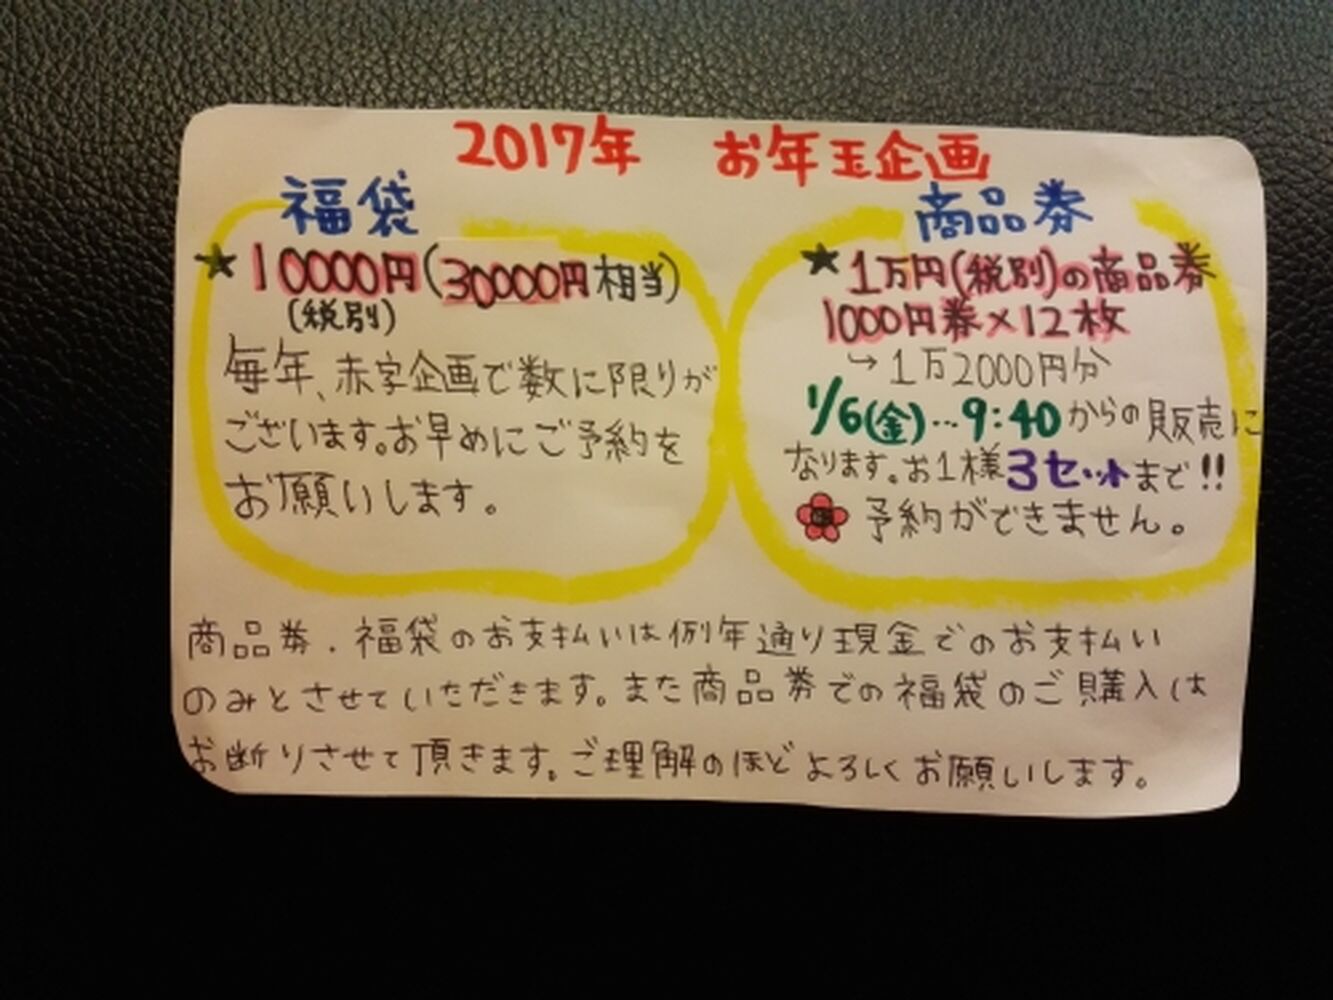 2017年 お年玉企画
福袋
★10000円(30000円相当)
(税別)
毎年、赤字企画で数に限りが
ございます。お早めにご予約を
お願いします。
商品券
★1万円(税別)の商品券
1000円券×12枚
→1万2000円分
1/6(金)…9:40からの販売に
なります。お1様3セットまで!!
予約ができません。
商品券.福袋のお支払いは例年通り現金でのお支払い
のみとさせていただきます。また商品券での福袋のご購入は
お断りさせて頂きます。ご理解のほどよろしくお願いします。